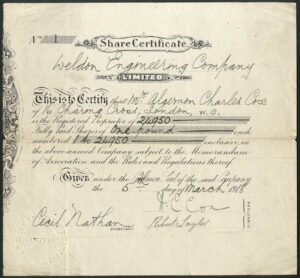 No. 1
Share Certificate.
Weldon Engineering Company
LIMITED
This is to Certify that Mr. Algernon Charles Cox
of 16 Charing Cross, London, W.C.
is the Registered Proprietor of 24050
Fully Paid Shares of One pound each
numbered 1 to 24050 inclusive in
the above-named Company subject to the Memorandum
of Association and the Rules and Regulations thereof
Given under the Common Seal of the said Company
the 5th day of March 1918
A C Cox
Cecil Nathan
SECRETARY.
Robert Taylor
DIRECTORS